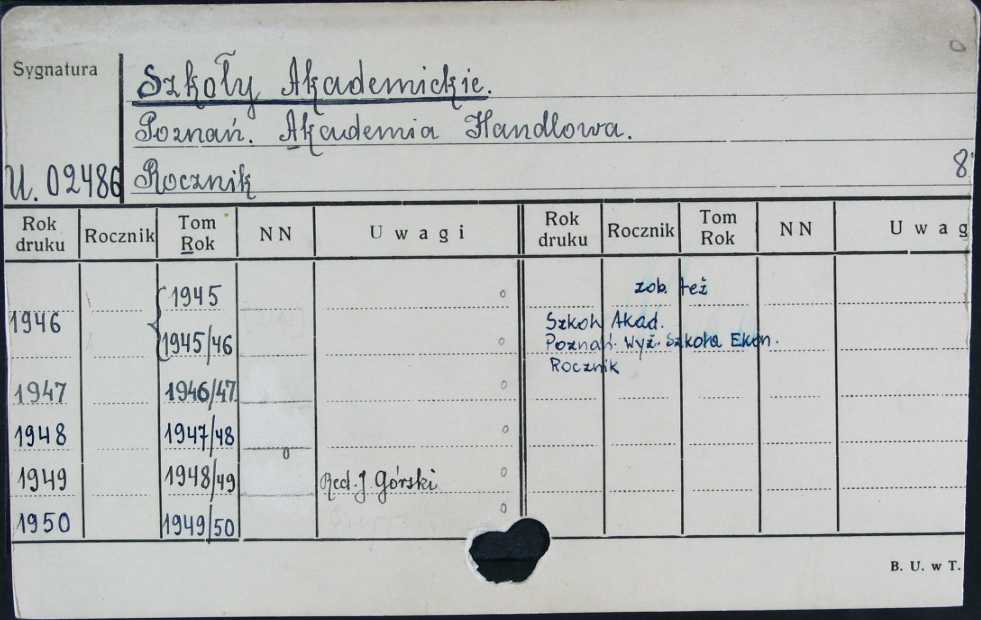 Sygnatura
Szkoły Akademickie.
Poznań. Akademia Handlowa.
U. 02486 Rocznik 8°
Rok druku Rocznik Tom Rok NN Uwagi Rok druku Rocznik Tom Rok NN Uwag
1946 1945
1945/46
1947 1946/47
1948 1947/48
1949 1948/49 Red. J Górski
1950 1949/50
zob. też
Szkoły Akad.
Poznań. Wyż. Szkoła Ekon.
Rocznik
B. U. w T.